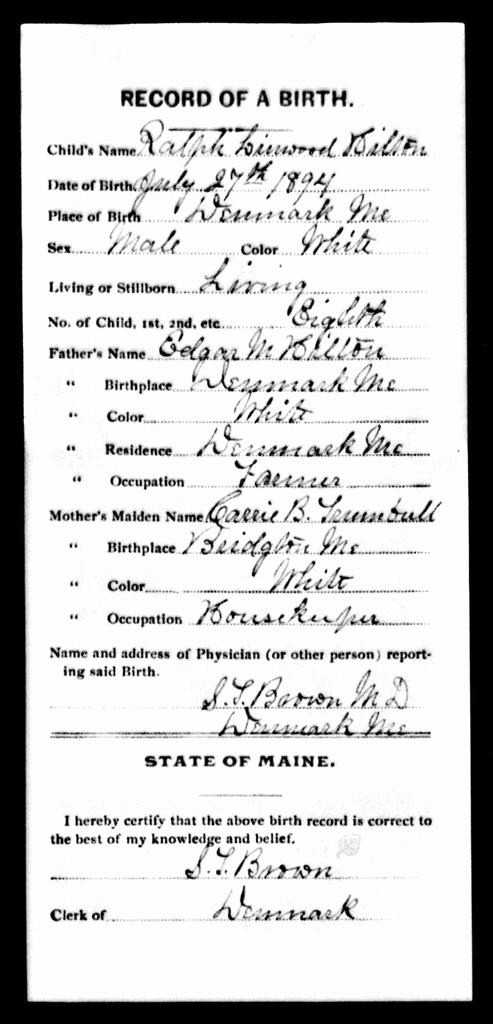 RECORD OF A BIRTH.
Child's Name Ralph Linwood Hilton
Date of Birth July 27th 1894
Place of Birth Denmark Me
Sex Male Color White
Living or Stillborn Living
No. of Child, 1st, 2nd, etc. Eighth
Father's Name Edgar M Hilton
" Birthplace Denmark Me
" Color White
" Residence Denmark Me
" Occupation Farmer
Mother's Maiden Name Carrie B. Trumbull
" Birthplace Bridgton Me
" Color White
" Occupation Housekeeper
Name and address of Physician (or other person) report-
ing said Birth.
S. T. Brown M D
Denmark Me
STATE OF MAINE.
I hereby certify that the above birth record is correct to
the best of my knowledge and belief.
S. T. Brown
Clerk of Denmark